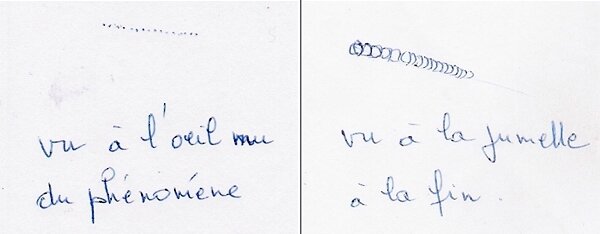 vu à l'oeil nu
du phénomène
vu à la jumelle
à la fin.